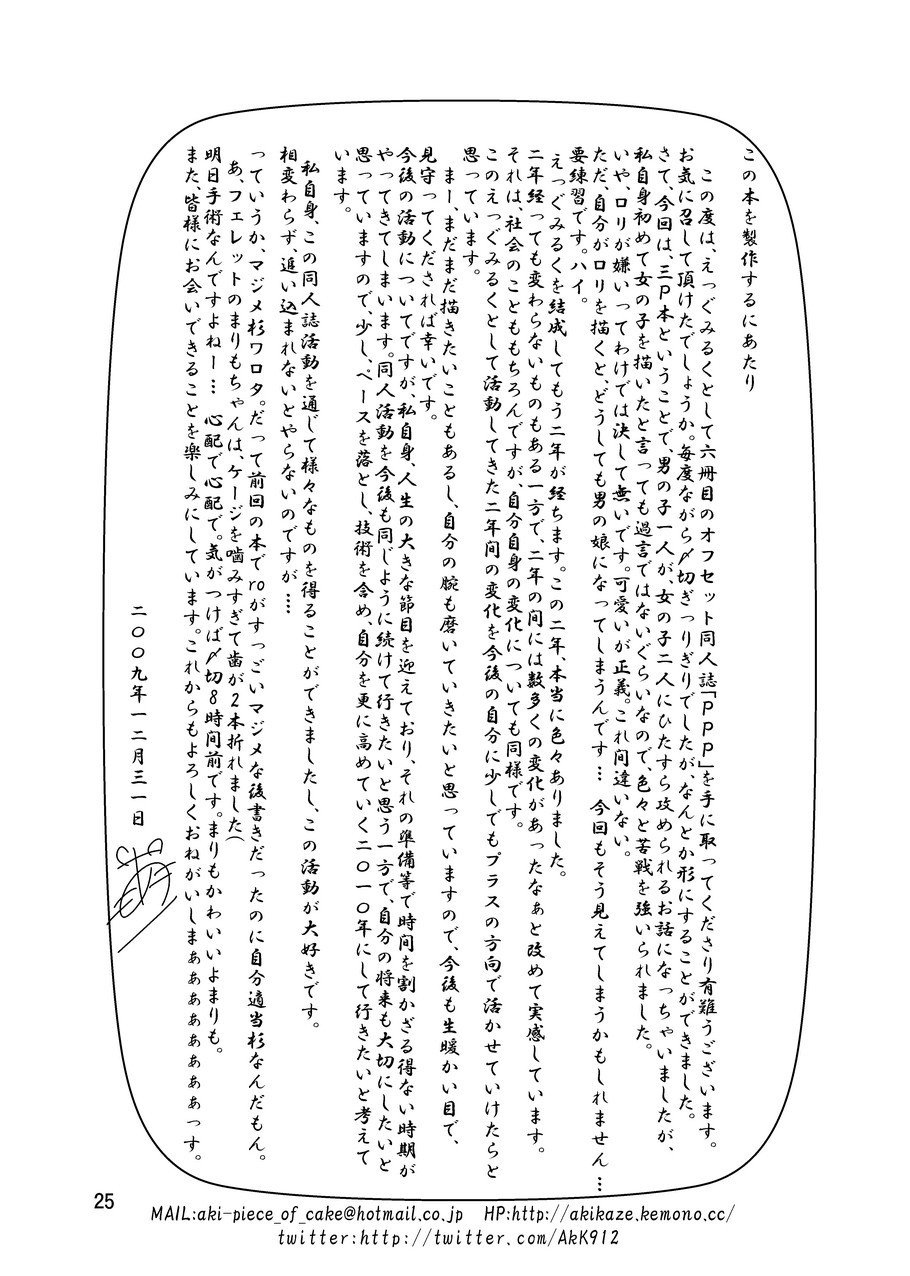 この本を製作するにあたり
この度は、えっぐみるくとして六冊目のオフセット同人誌「ＰＰＰ」を手に取ってくださり有難うございます。
お気に召して頂けたでしょうか。毎度ながら〆切ぎっりぎりでしたが、なんとか形にすることができました。
さて、今回は、三Ｐ本ということで、男の子一人が、女の子二人にひたすら攻められるお話になっちゃいましたが、
私自身初めて女の子を描いたと言っても過言ではないぐらいなので、色々と苦戦を強いられました。
いや、ロリが嫌いってわけでは決して無いです。可愛いが正義。これ間違いない。
ただ、自分がロリを描くと、どうしても男の娘になってしまうんです…　今回もそう見えてしまうかもしれません…
要練習です。ハイ。
えっぐみるくを結成してもう二年が経ちます。この二年、本当に色々ありました。
二年経っても変わらないものもある一方で、二年の間には数多くの変化があったなぁと改めて実感しています。
それは、社会のことももちろんですが、自分自身の変化についても同様です。
このえっぐみるくとして活動してきた二年間の変化を今後の自分に少しでもプラスの方向で活かせていけたらと
思っています。
まー、まだまだ描きたいこともあるし、自分の腕も磨いていきたいと思っていますので、今後も生暖かい目で、
見守ってくだされば幸いです。
今後の活動についてですが、私自身、人生の大きな節目を迎えており、それの準備等で時間を割かざる得ない時期が
やってきてしまいます。同人活動を今後も同じように続けて行きたいと思う一方で、自分の将来も大切にしたいと
思っていますので、少し、ペースを落とし、技術を含め、自分を更に高めていく二〇一〇年にして行きたいと考えて
います。
私自身、この同人誌活動を通じて様々なものを得ることができましたし、この活動が大好きです。
相変わらず、追い込まれないとやらないのですが…
っていうか、マジメ杉ワロタ。だって前回の本でroがすっごいマジメな後書きだったのに自分適当杉なんだもん。
あ、フェレットのまりもちゃんは、ケージを噛みすぎて歯が２本折れました（
明日手術なんですよねー…　心配で心配で。気がつけば〆切８時間前です。まりもかわいいよまりも。
また、皆様にお会いできることを楽しみにしています。これからもよろしくおねがいしまぁぁぁぁぁぁぁぁっす。
二〇〇九年一二月三一日
25
MAIL:aki-piece_of_cake@hotmail.co.jp　HP:http://akikaze.kemono.cc/
twitter:http://twitter.com/AkK912